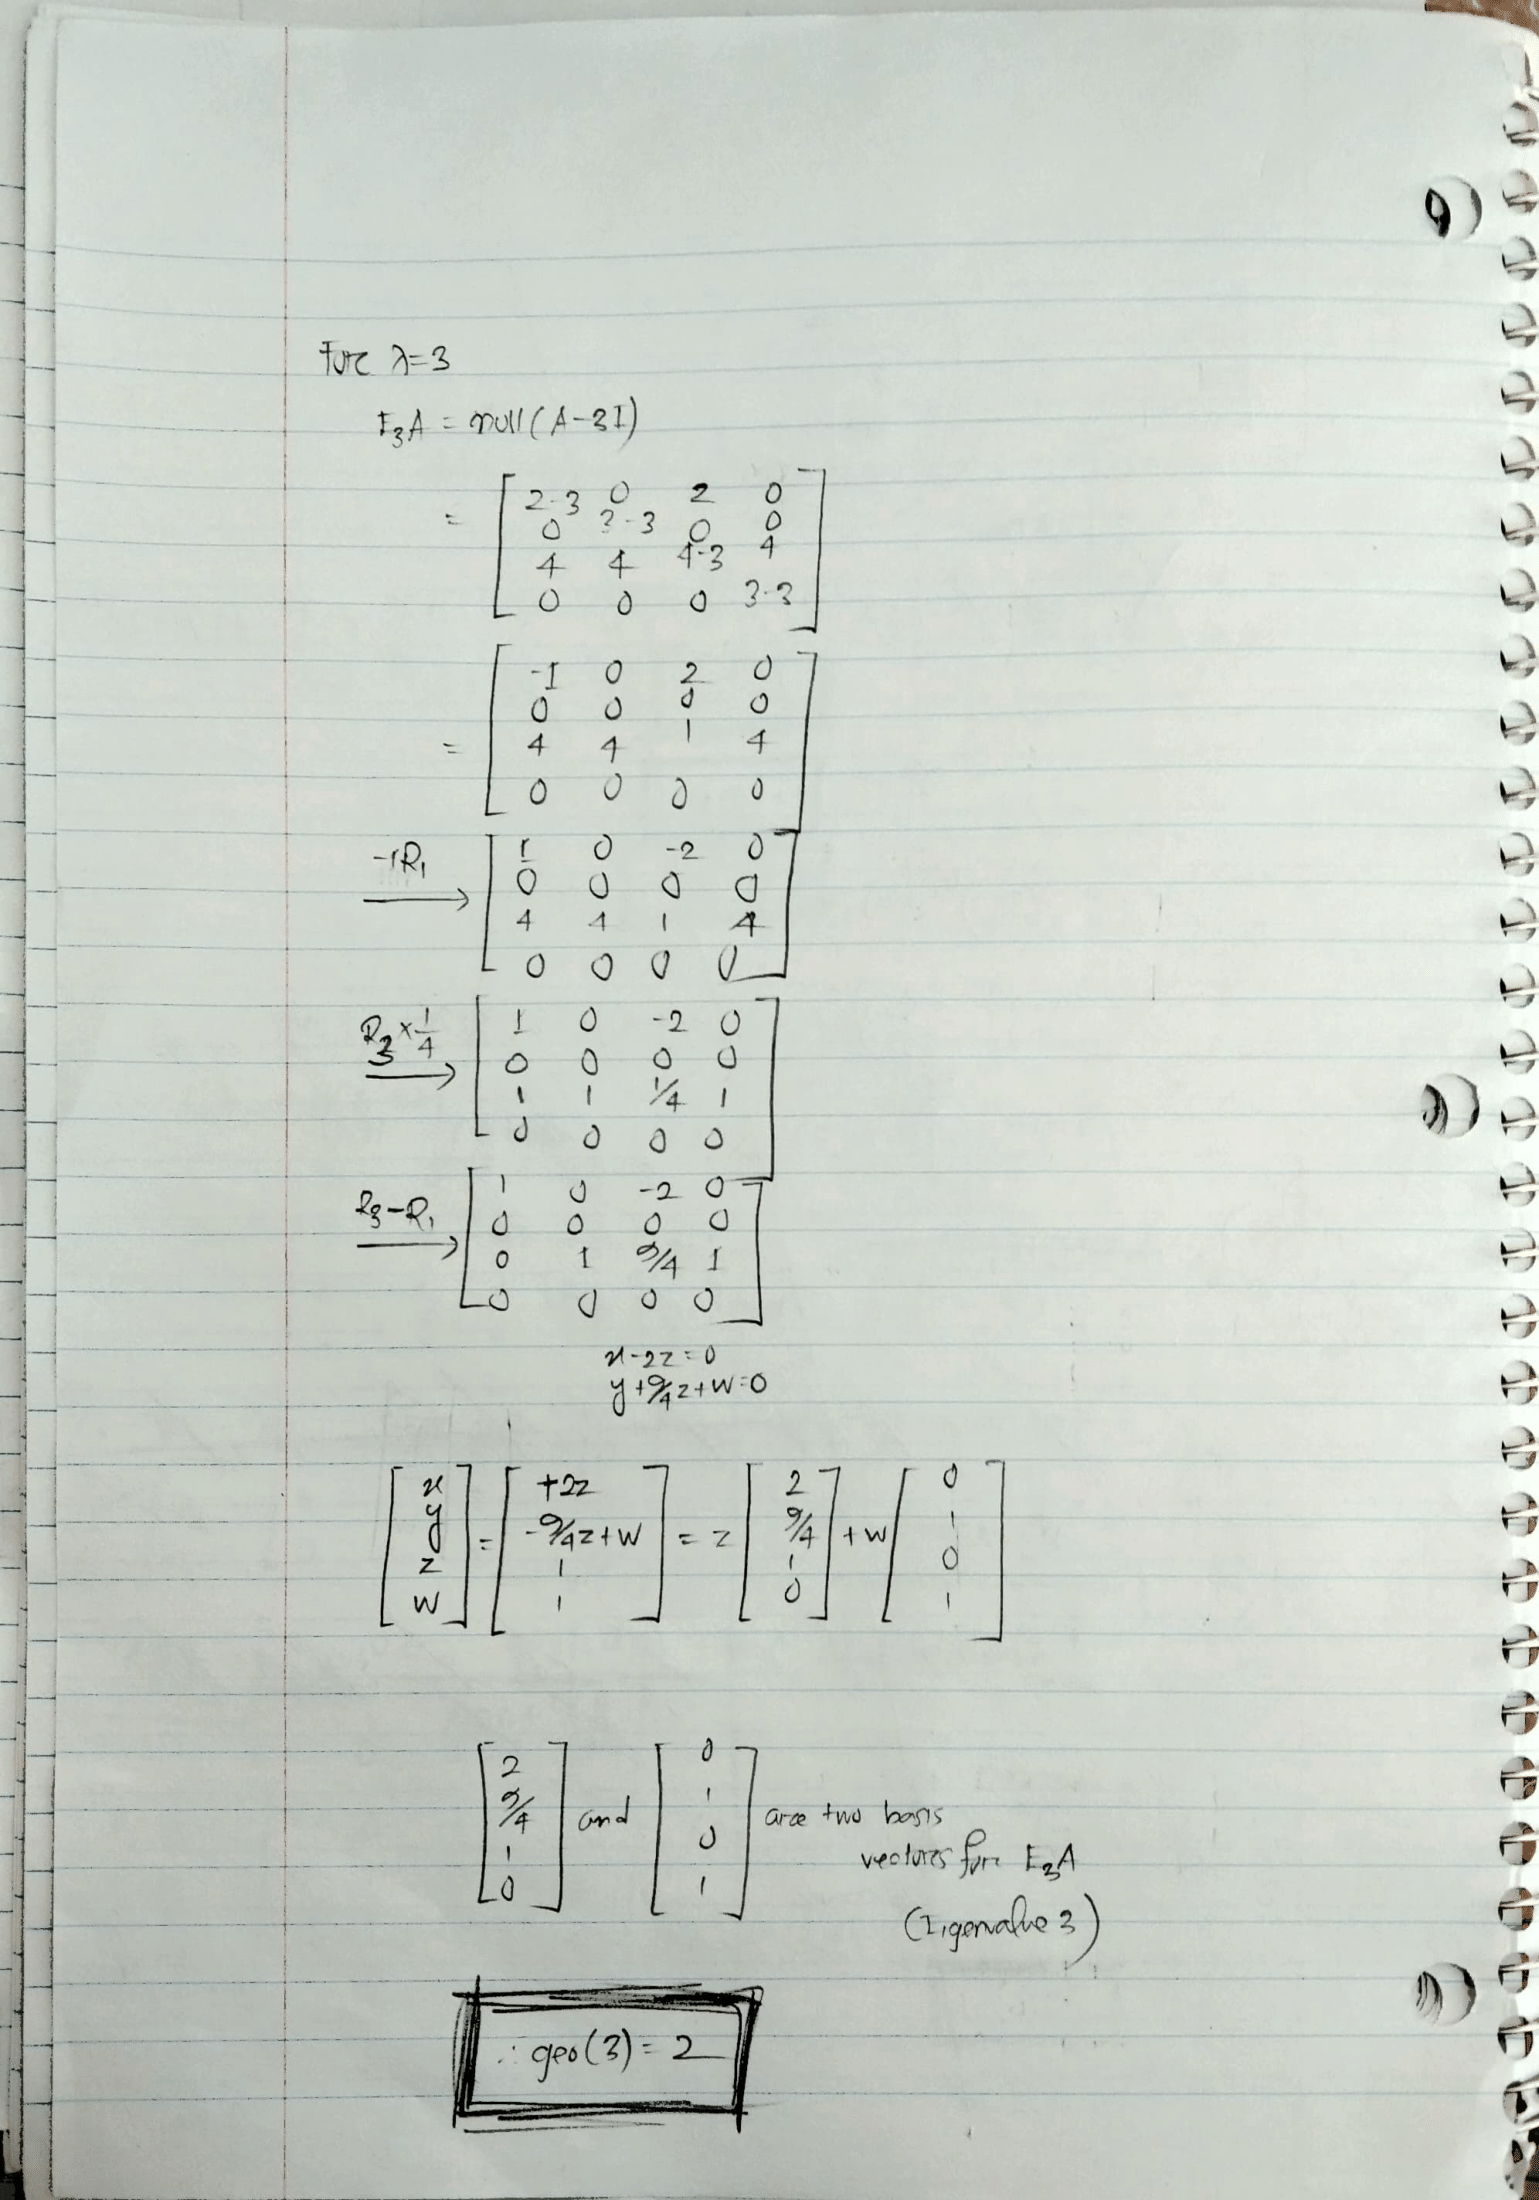 For λ=3
E₃A = null(A-3I)
= [ 2-3 0 2 0
0 3-3 0 0
4 4 4-3 4
0 0 0 3-3 ]
= [ -1 0 2 0
0 0 0 0
4 4 1 4
0 0 0 0 ]
-1R₁ → [ 1 0 -2 0
0 0 0 0
4 4 1 4
0 0 0 0 ]
R₃×1/4 → [ 1 0 -2 0
0 0 0 0
1 1 1/4 1
0 0 0 0 ]
R₃-R₁ → [ 1 0 -2 0
0 0 0 0
0 1 9/4 1
0 0 0 0 ]
x-2z=0
y+9/4z+w=0
[ x y z w ] = [ +2z -9/4z+w 1 1 ] = z [ 2 9/4 1 0 ] + w [ 0 1 0 1 ]
[ 2 9/4 1 0 ] and [ 0 1 0 1 ] are two basis
vectors for E₃A
(Eigenvalue 3)
∴ geo(3) = 2